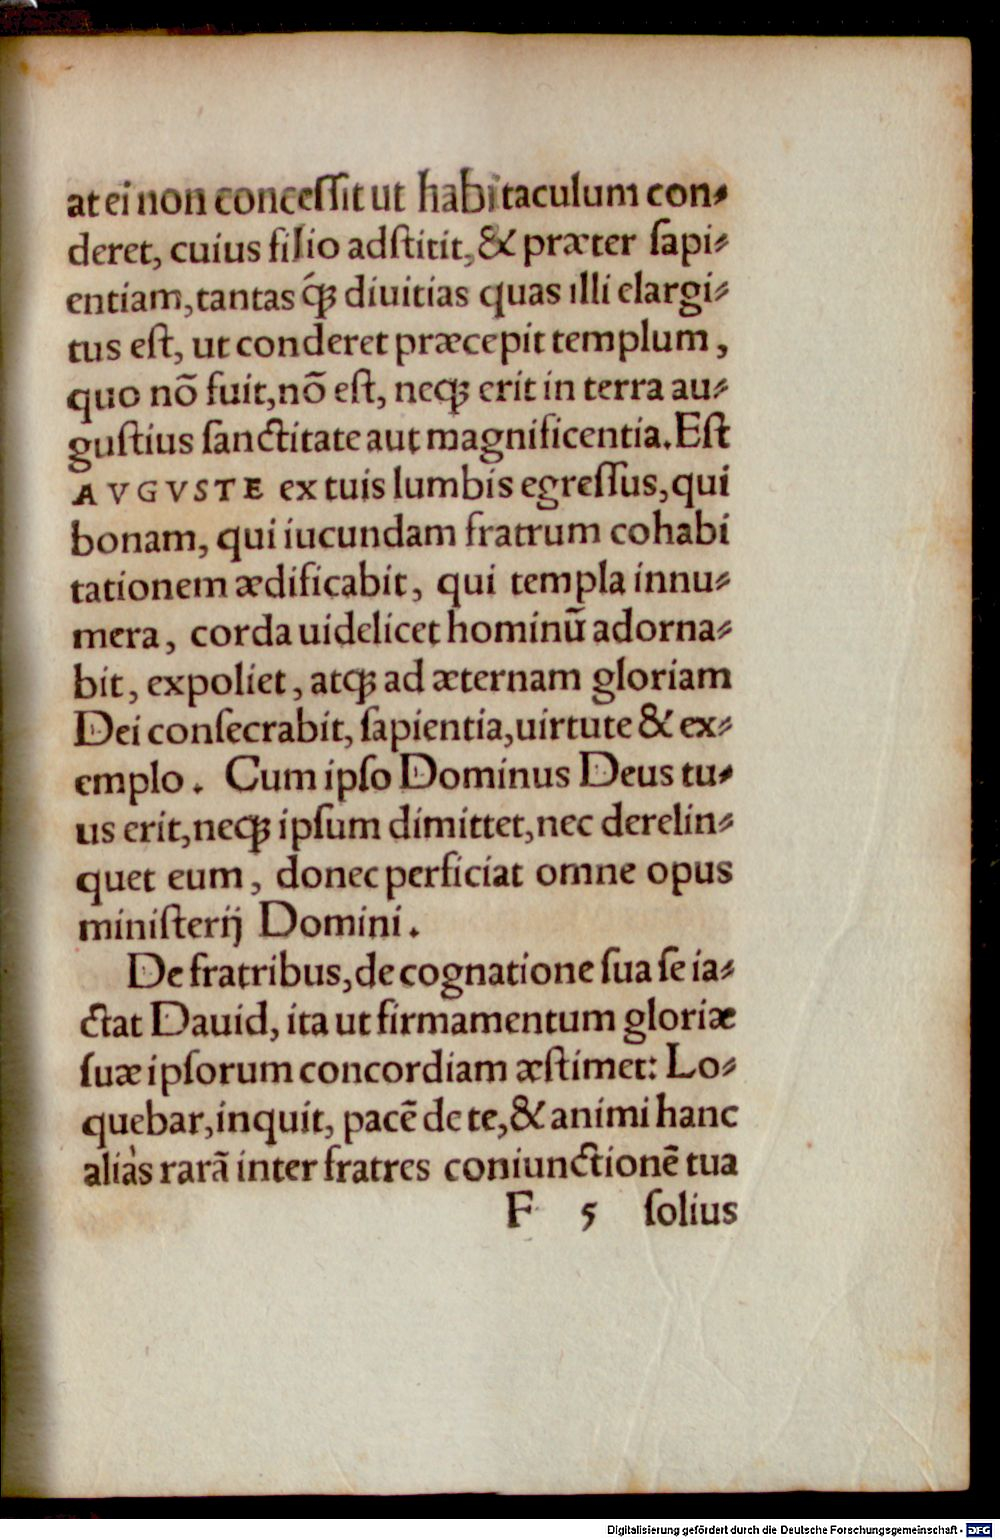 at ei non conceſſit ut habitaculum con⸗
deret, cuius filio adſtitit, & præter ſapi⸗
entiam, tantas q́ꝫ diuitias quas illi elargi⸗
tus eſt, ut conderet præcepit templum,
quo nō fuit, nō eſt, neqꝫ erit in terra au⸗
guſtius ſanctitate aut magnificentia. Eſt
AVGVSTE ex tuis lumbis egreſſus, qui
bonam, qui iucundam fratrum cohabi
tationem ædificabit, qui templa innu⸗
mera, corda uidelicet hominũ adorna⸗
bit, expoliet, atqꝫ ad æternam gloriam
Dei conſecrabit, ſapientia, uirtute & ex⸗
emplo. Cum ipſo Dominus Deus tu⸗
us erit, neqꝫ ipſum dimittet, nec derelin⸗
quet eum, donec perficiat omne opus
miniſterij Domini.
De fratribus, de cognatione ſua ſe ia⸗
ctat Dauid, ita ut firmamentum gloriæ
ſuæ ipſorum concordiam æſtimet: Lo⸗
quebar, inquit, pacē de te, & animi hanc
aliàs rarā inter fratres coniunctionē tua
F 5 ſolius
Digitalisierung gefördert durch die Deutsche Forschungsgemeinschaft - DFG